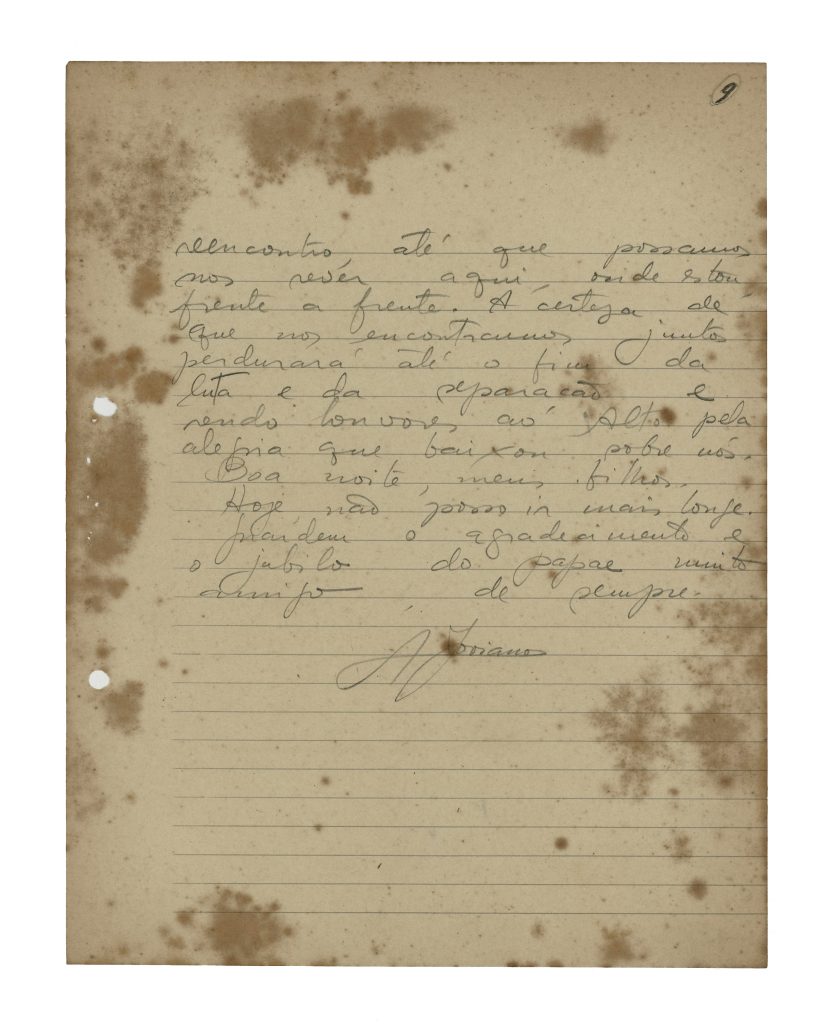 9
reencontro até que possamos
nos revêr aqui, onde estou
frente a frente. A certeza de
que nos encontramos juntos
perdurará até o fim da
luta e da separação e
rendo louvores ao Alto pela
alegria que baixou sobre nós.
Boa noite, meus filhos.
Hoje não posso ir mais longe.
Guardem o agradecimento e
o jubilo do papae muito
amigo de sempre.
A. Joviano